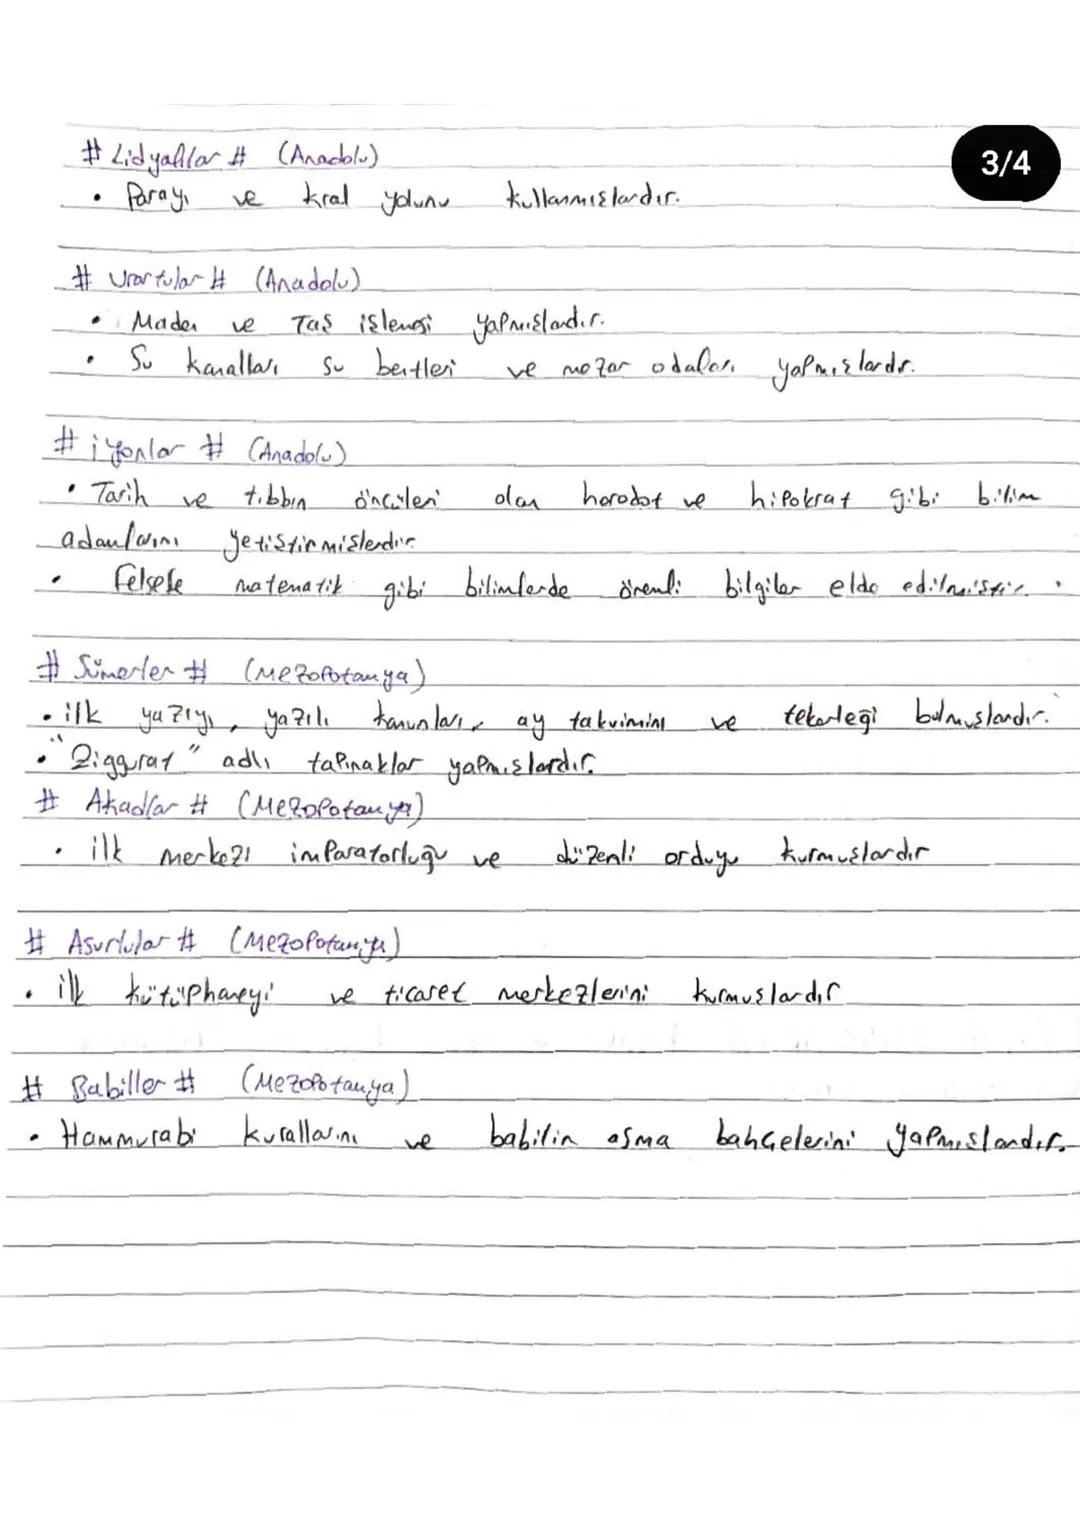 # Lidyalılar # (Anadolu)
3/4
• Parayı ve kral yolunu kullanmışlardır.
# Urartular # (Anadolu)
• Maden ve Taş işlemesi yapmışlardır.
• Su kanalları su bentleri ve mezar odaları yapmışlardır.
# iyonlar # (Anadolu)
• Tarih ve tıbbın öncüleri olan horodot ve hipokrat gibi bilim
adamlarını yetiştirmişlerdir
• Felsefe matematik gibi bilimlerde önemli bilgiler elde edilmiştir.
# Sümerler # (Mezopotamya)
• ilk yazıyı, yazılı kanunları, ay takvimini ve tekerleği bulmuşlardır.
• "Ziggurat" adlı tapınaklar yapmışlardır.
# Akadlar # (Mezopotamya)
• ilk merkezi imparatorluğu ve düzenli orduyu kurmuşlardır
# Asurlular # (Mezopotamya)
• ilk kütüphaneyi ve ticaret merkezlerini kurmuşlardır
# Babiller # (Mezopotamya)
• Hammurabi kurallarını ve babilin asma bahçelerini yapmışlardır.